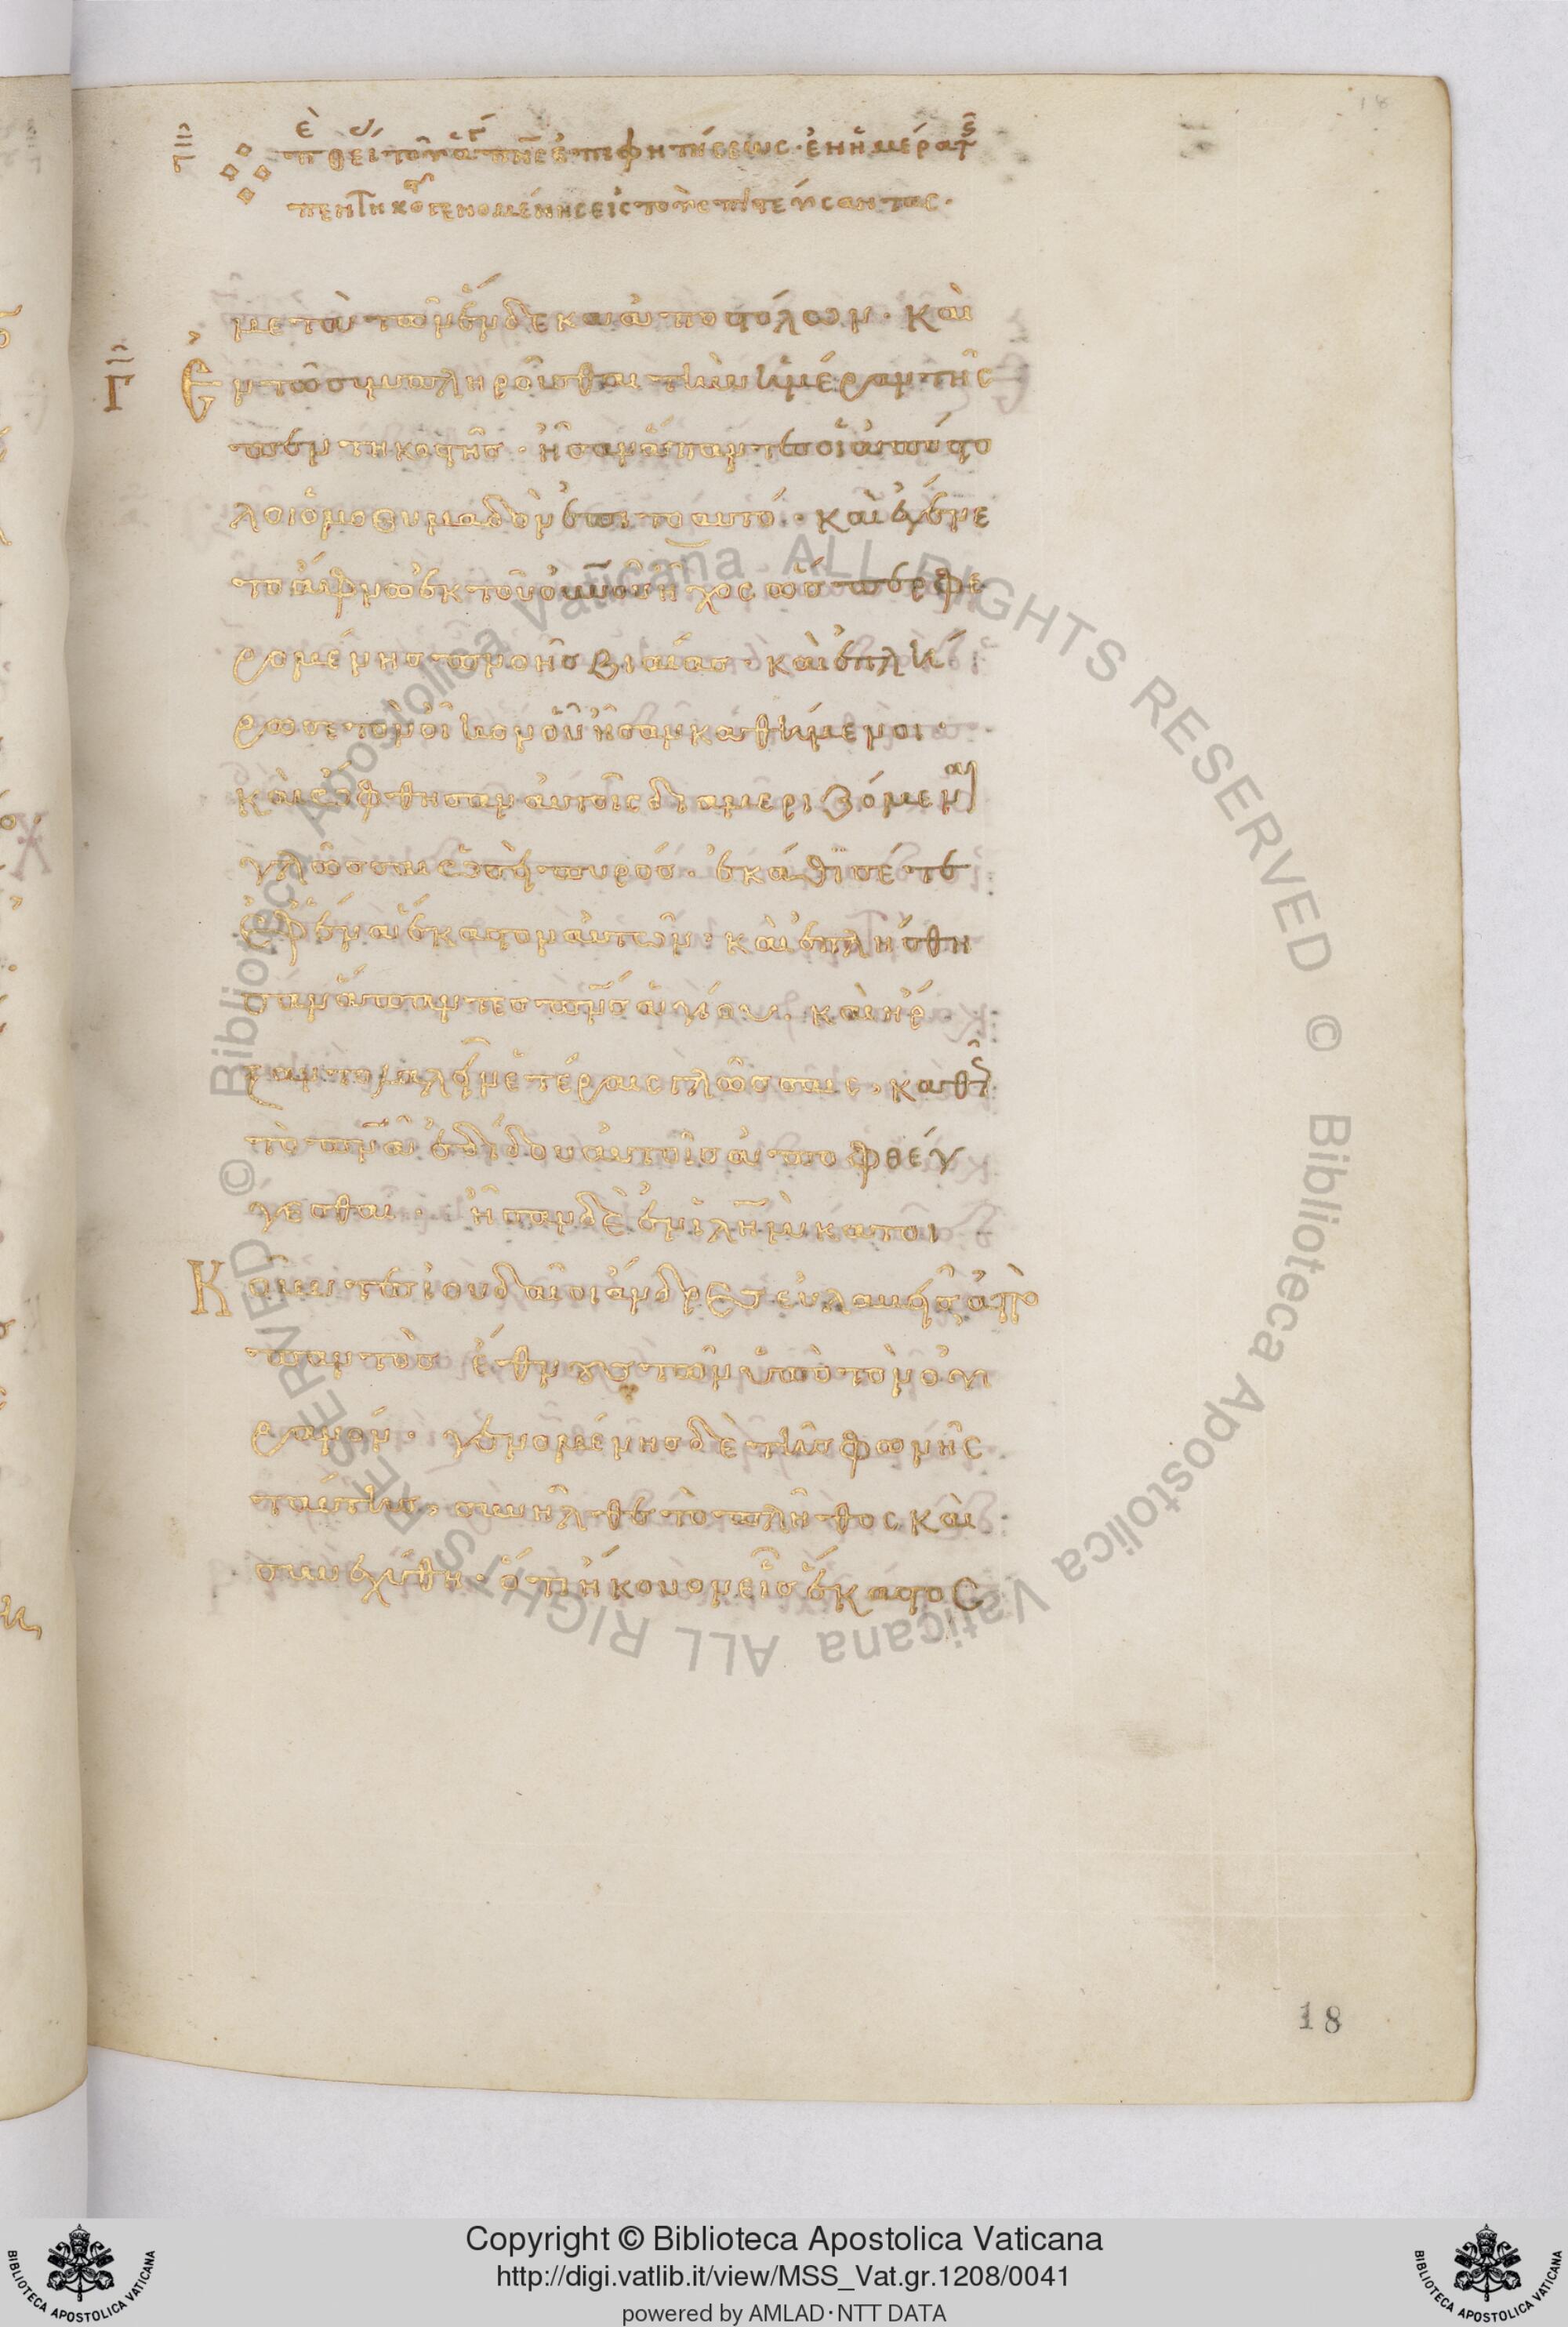 πε θεί του α πνς επιφητήσεως· ἐν ἡμέρα τς
πεντηκοσ γενομένης εἰς τοὺς πιστεύσαντας·
μετὰ τῶν ἕνδεκα ἀποστόλων· καὶ
Γ Ἐν τῶ συμπληροῦσθαι τὴν ἡμέραν τῆς
πεντηκοστῆς· ἦσαν ἅπαντες οἱ ἀπόστο
λοι ὁμοθυμαδὸν ἐπιτοαυτό· καὶ ἐγένε
το ἄφνω ἐκ τοῦ οὐνοῦ ἦχος ὥσπερ φε
ρομένης πνοῆς βιαίας· καὶ ἐπλή
ρωσε τὸν οἶκον οὗ ἦσαν καθήμενοι·
καὶ ὤφθησαν αὐτοῖς διαμεριζόμεναι
γλῶσσαι ὡσεὶ πυρός· ἐκάθισέ τε
ἐφ' ἕνα ἕκαστον αὐτῶν· καὶ ἐπλήσθη
σαν ἅπαντες πνς ἁγίου· καὶ ἤρ
ξαντο λαλεῖν ἑτέραις γλῶσσαις· καθὼς
τὸ πνα ἐδίδου αὐτοῖς ἀποφθέγ
γεσθαι· ἦσαν δὲ ἐν ἱλῆμ κατοι
Κ οῦντες ἰουδαῖοι ἄνδρες εὐλαβεῖς ἀπὸ
παντὸς ἔθνους τῶν ὑπὸ τὸν οὐ
ρανόν· γενομένης δὲ τῆς φωνῆς
ταύτης, συνῆλθε τὸ πλῆθος καὶ
συνεχύθη· ὅτι ἤκουον εἷς ἕκαστος
18
Copyright © Biblioteca Apostolica Vaticana
http://digi.vatlib.it/view/MSS_Vat.gr.1208/0041
powered by AMLAD·NTT DATA